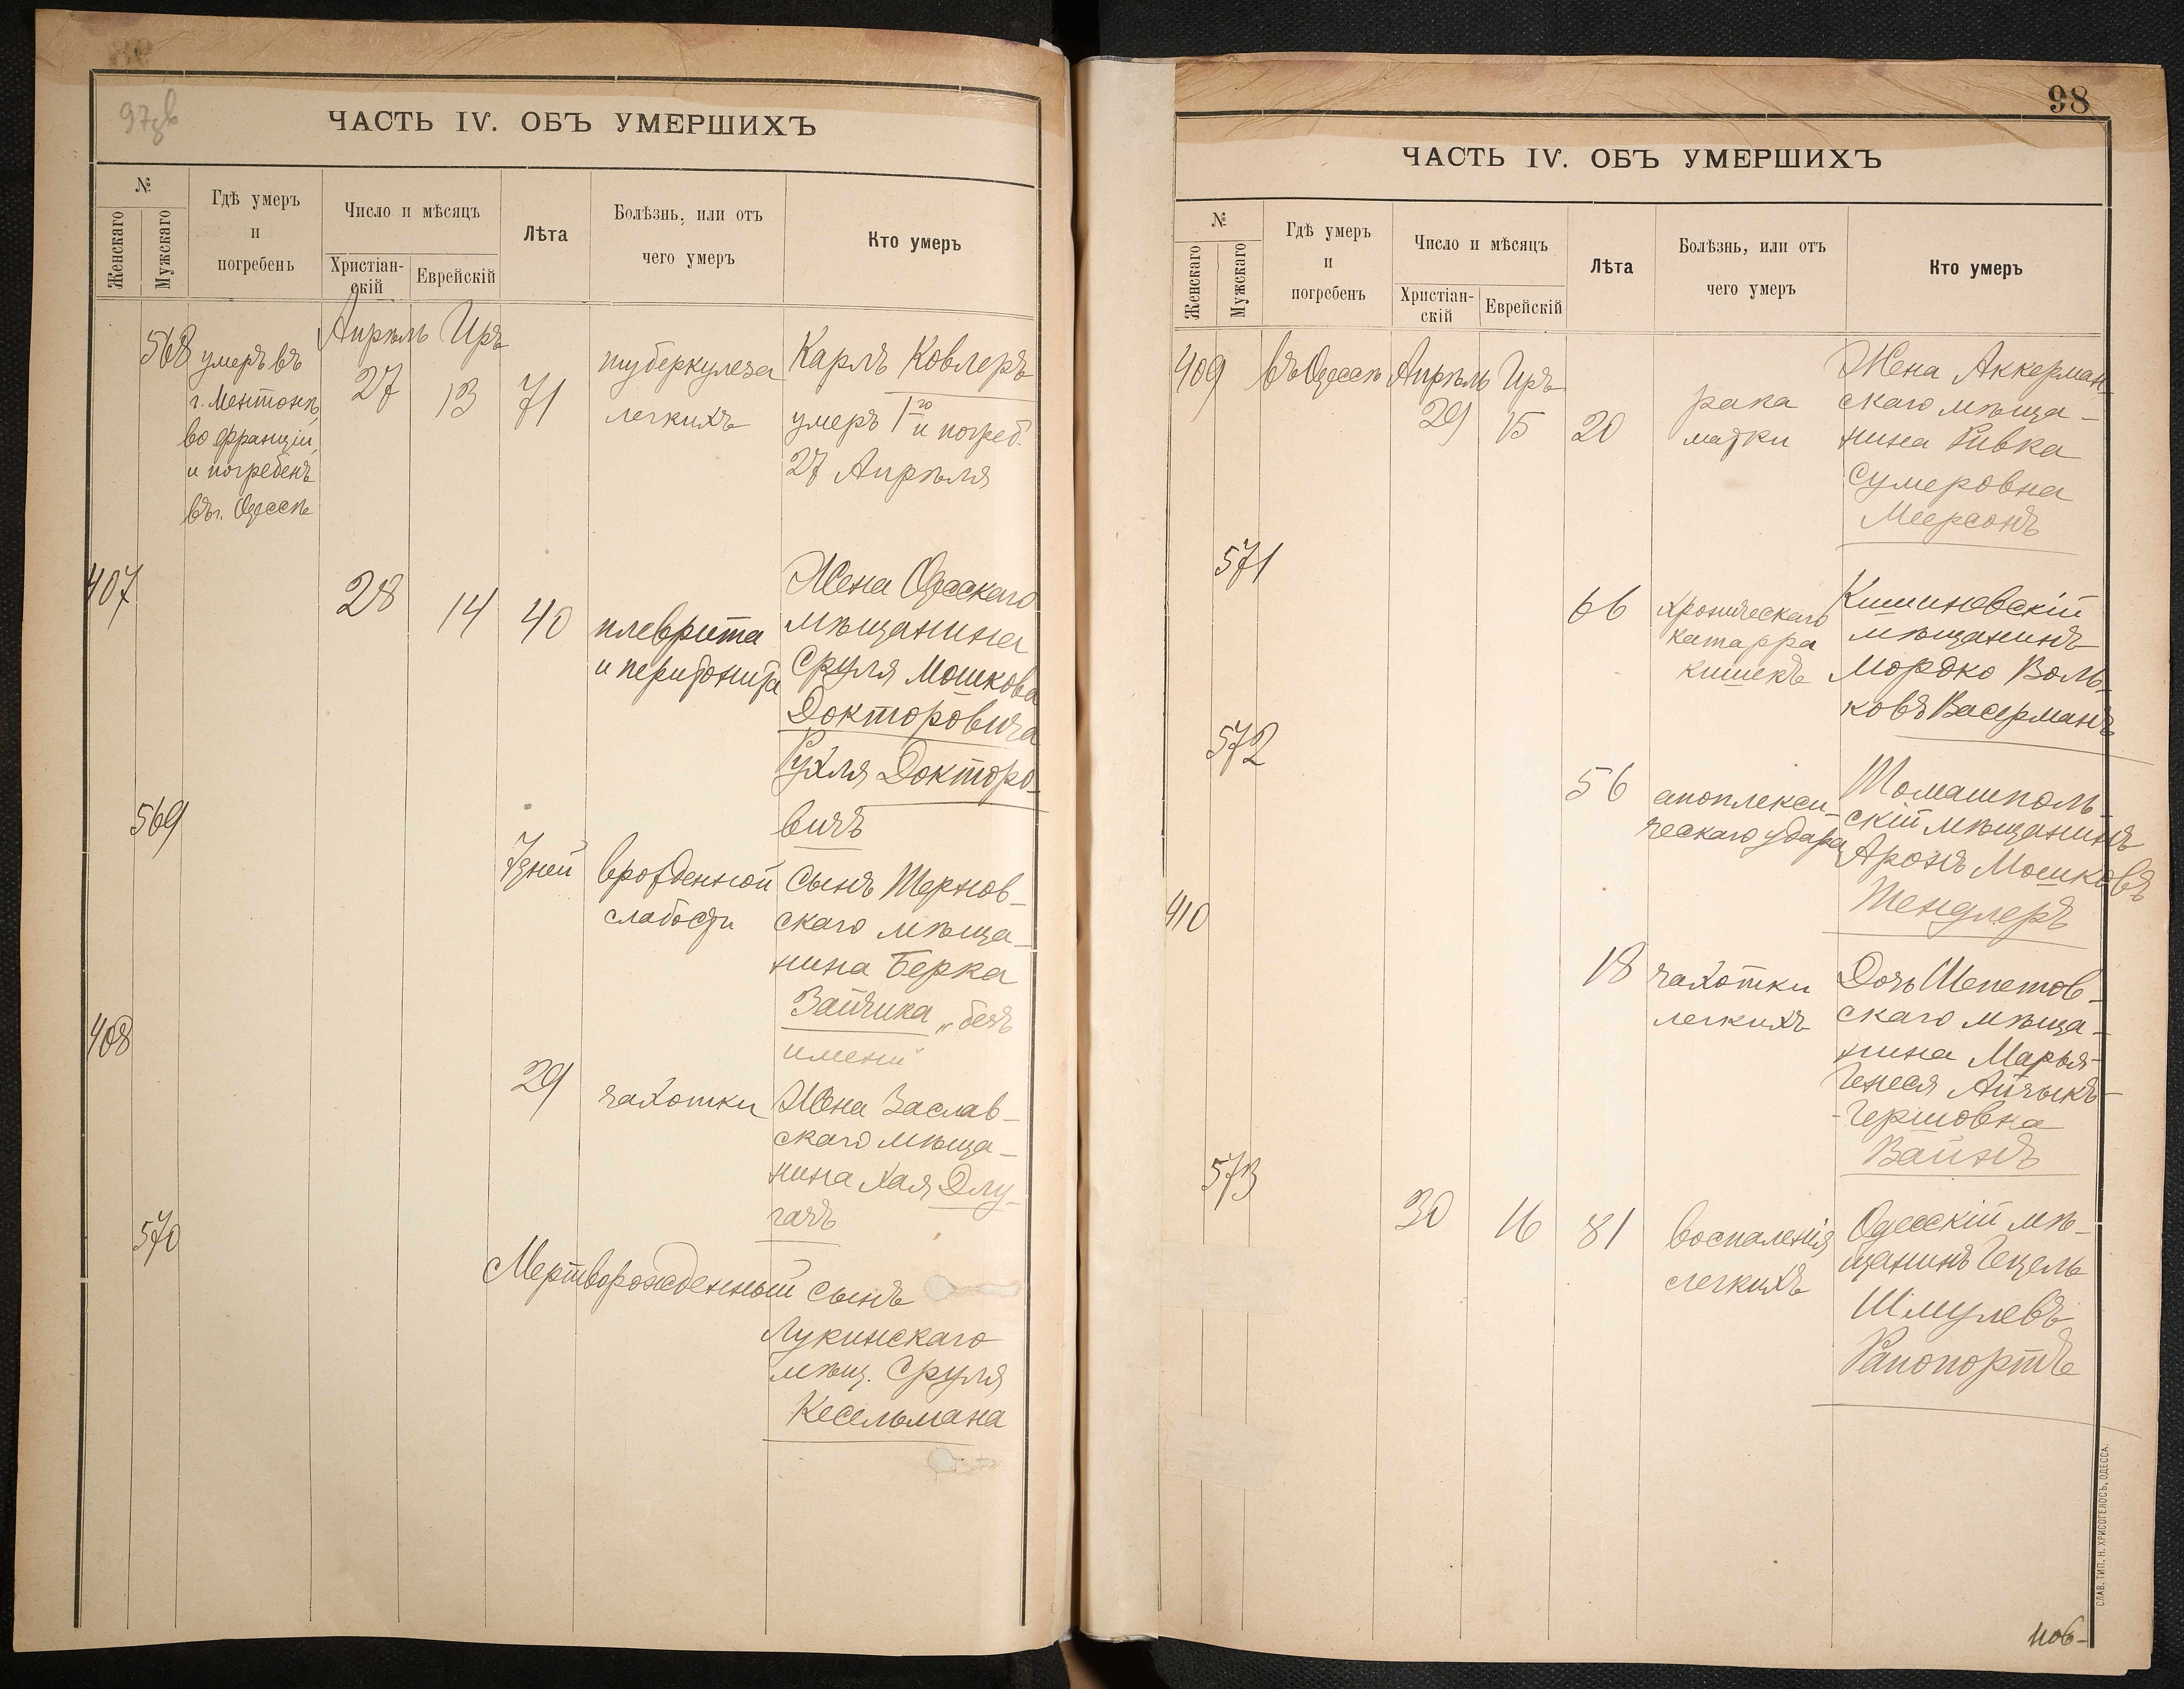 97об
ЧАСТЬ IV. ОБЪ УМЕРШИХЪ
№
Женскаго
Мужскаго
Гдѣ умеръ
и
погребенъ
Число и мѣсяцъ
Христіан-
скій
Еврейскій
Лѣта
Болѣзнь, или отъ
чего умеръ
Кто умеръ
Апрѣль Иръ
568
умеръ въ
г. Ментонѣ,
во Франціи,
и погребенъ
въ г. Одессѣ
27
13
71
туберкулеза
легкихъ
Карлъ Ковлеръ
умеръ 1го и погреб.
27 Апрѣля
407
28
14
40
плеврита
и перитонита
Жена Одесскаго
мѣщанина
Сруля Мошкова
Докторовича
Рухля Докторо-
вичъ
569
7 дней
врожденной
слабости
Сынъ Тернов-
скаго мѣща-
нина Берка
Зайчика „безъ
имени"
408
29
чахотки
Жена Заслав-
скаго мѣща-
нина Хая Длу-
гачъ
570
Мертворожденный сынъ
Лукинскаго
мѣщ. Сруля
Кесельмана
98
ЧАСТЬ IV. ОБЪ УМЕРШИХЪ
№
Женскаго
Мужскаго
Гдѣ умеръ
и
погребенъ
Число и мѣсяцъ
Христіан-
скій
Еврейскій
Лѣта
Болѣзнь, или отъ
чего умеръ
Кто умеръ
409
въ Одессѣ
Апрѣль Иръ
29
15
20
рака
матки
Жена Аккерман-
скаго мѣща-
нина Ривка
Сумеровна
Меерсонъ
571
66
хроническаго
катарра
кишекъ
Кишиневскій
мѣщанинъ
Мордко Воль-
ковъ Васерманъ
572
56
апоплекси-
ческаго удара
Томашполь-
скій мѣщанинъ
Аронъ Мошковъ
Тендлеръ
410
18
чахотки
легкихъ
Дочь Шепетов-
скаго мѣща-
нина Марья-
Генеся Айзыкъ-
-Гершовна
Вайнъ
573
30
16
81
воспаленія
легкихъ
Одесскій мѣ-
щанинъ Гецель
Шмулевъ
Рапопортъ
СЛАВ. ТИП. Н. ХРИСОГЕЛОСЪ, ОДЕССА.